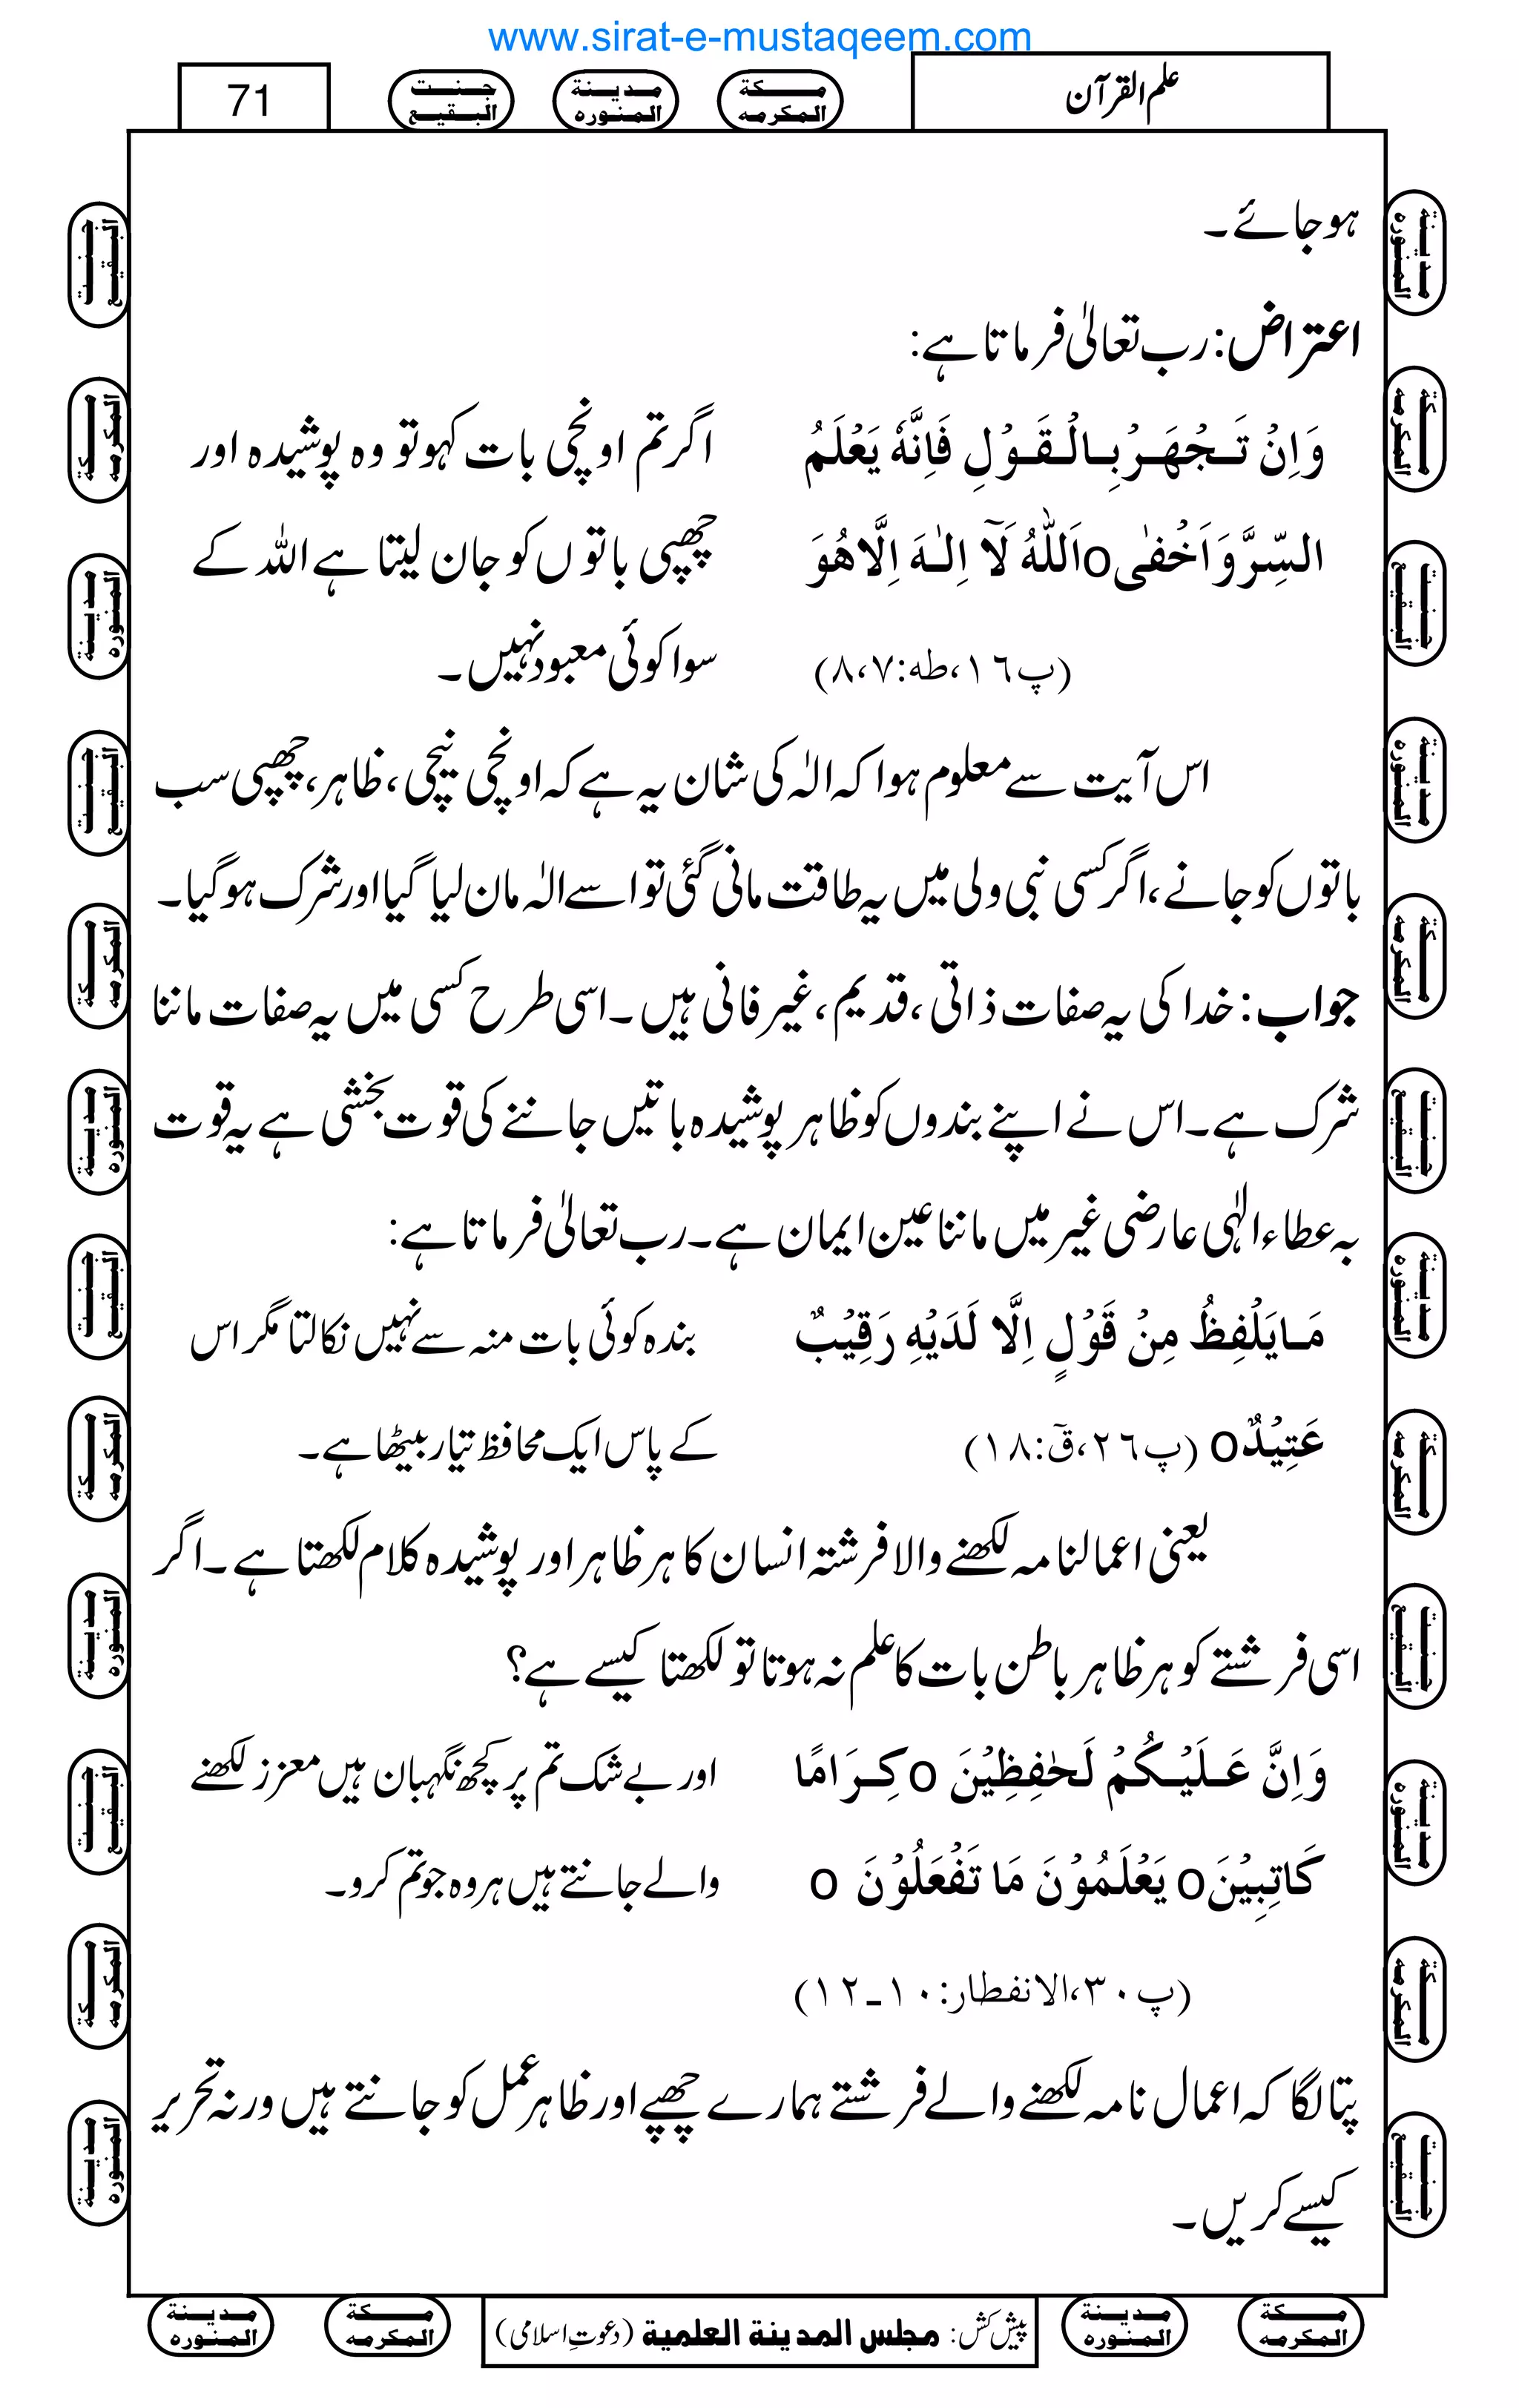 www.sirat-e-mustaqeem.com
علم القرآن
مكة المكرمه
مدينة المنوره
جنت البقيع
71
ہوجائے۔
اعتراض: رب تعالیٰ فرماتا ہے:
وَاِنْ تَجْهَرْ بِالْقَوْلِ فَاِنَّهٗ يَعْلَمُ اگر تم اونچی بات کہو تو وہ پوشیدہ اور
السِّرَّ وَاَخْفٰى o اَللّٰهُ لَآ اِلٰهَ اِلَّا هُوَ چھپی باتوں کو جان لیتا ہے اللہ کے
(پ١٦،طه:٧،٨) سوا کوئی معبود نہیں۔
اس آیت سے معلوم ہوا کہ الٰہ کی شان یہ ہے کہ اونچی نیچی ،ظاہر، چھپی سب
باتوں کو جانے، اگر کسی نبی ولی میں یہ طاقت مانی گئی تو اسے الٰہ مان لیا گیا اور شرک ہوگیا۔
جواب: خدا کی یہ صفات ذاتی ، قدیم ، غیر فانی ہیں۔ اسی طرح کسی میں یہ صفات ماننا
شرک ہے۔ اس نے اپنے بندوں کو ظاہر پوشیدہ باتیں جاننے کی قوت بخشی ہے یہ قوت
بہ عطاء الٰہی عارضی غیر میں ماننا عین ایمان ہے۔ رب تعالیٰ فرماتا ہے:
مَا يَلْفِظُ مِنْ قَوْلٍ اِلَّا لَدَيْهِ رَقِيْبٌ بندہ کوئی بات منہ سے نہیں نکالتا مگر اس
عَتِيْدٌ o (پ٢٦،قٓ:١٨) کے پاس ایک محافظ تیار بیٹھا ہے۔
یعنی اعمالنامہ لکھنے والا فرشتہ انسان کا ہر ظاہر اور پوشیدہ کلام لکھتا ہے۔ اگر
اسی فرشتے کو ہر ظاہر باطن بات کا علم نہ ہوتا تو لکھتا کیسے ہے؟
وَاِنَّ عَلَيْكُمْ لَحٰفِظِيْنَ o كِرَامًا اور بے شک تم پر کچھ نگہبان ہیں معزز لکھنے
كَاتِبِيْنَ o يَعْلَمُوْنَ مَا تَفْعَلُوْنَ o والے جانتے ہیں ہر وہ جو تم کرو۔
(پ٣٠،الانفطار:١٠۔١٢)
پتا لگا کہ اعمال نامہ لکھنے والے فرشتے ہمارے چھپے اور ظاہر عمل کو جانتے ہیں ورنہ تحریر
کیسے کریں۔
مكة المكرمه
مدينة المنوره
پیش کش: مجلس المدينة العلمية (دعوتِ اسلامی)
مكة المكرمه
مدينة المنوره